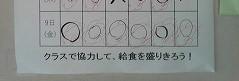 9日
(金)
クラスで協力して、給食を盛りきろう!